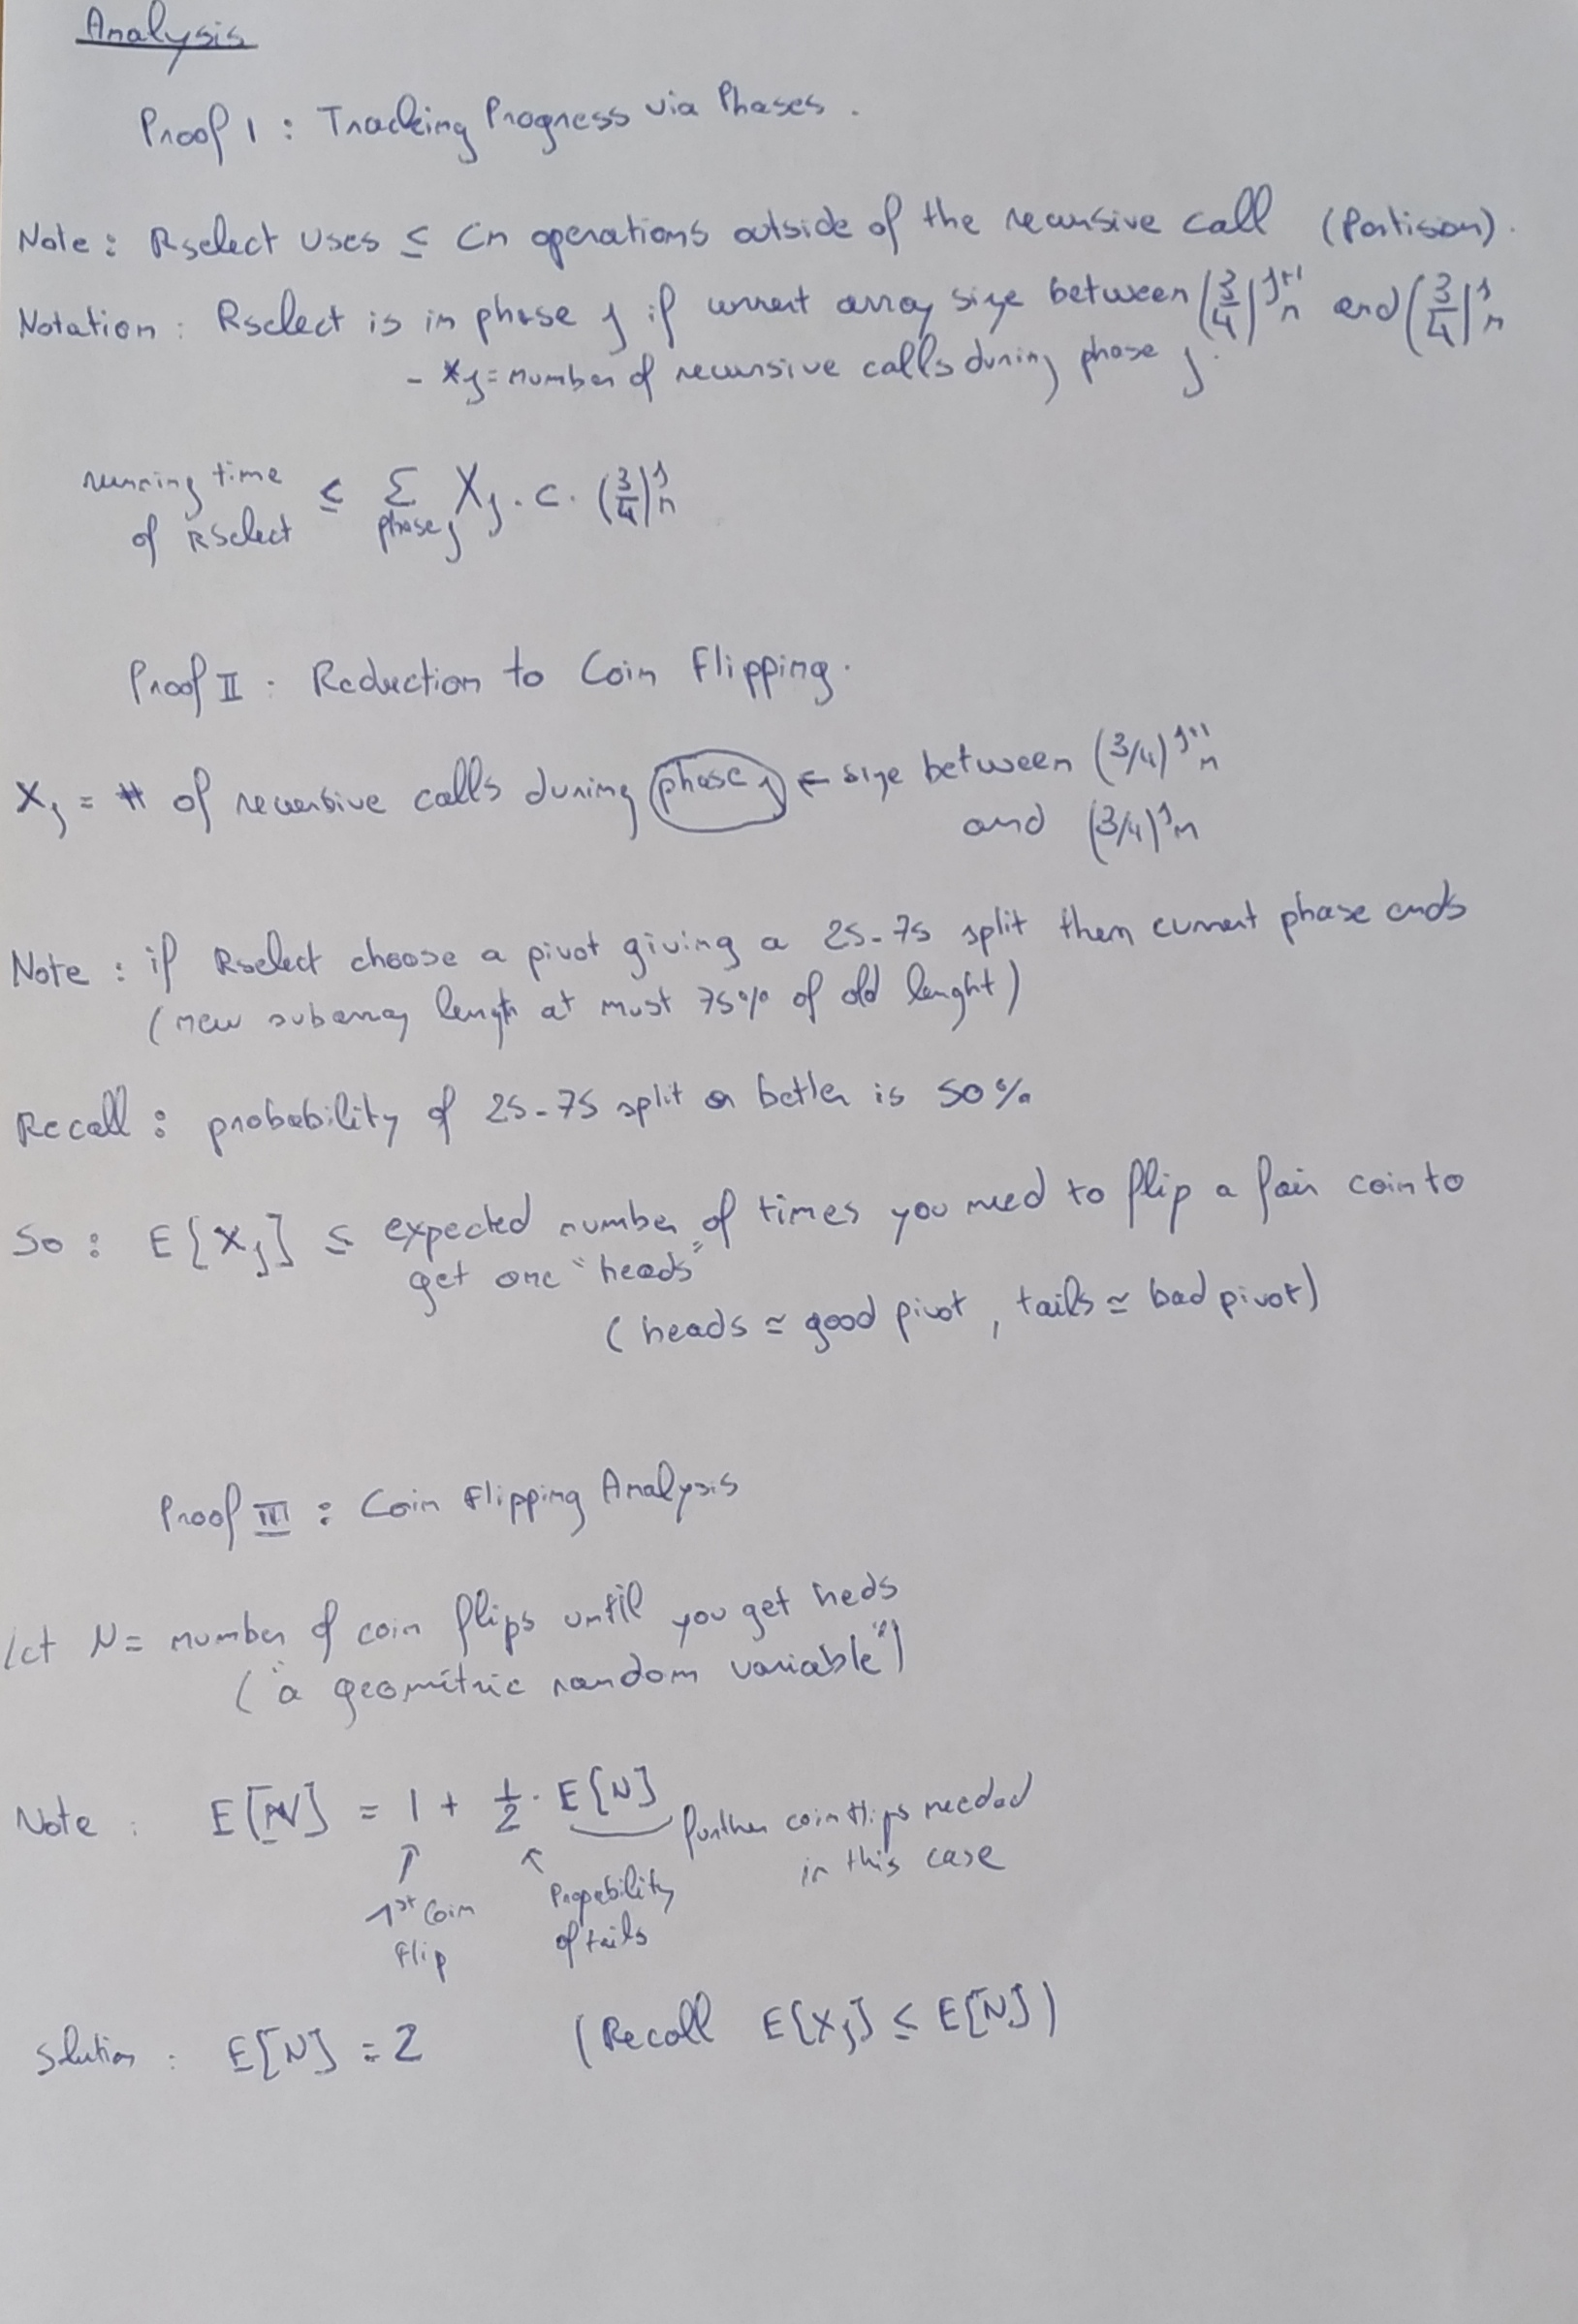 Analysis
Proof I : Tracking Progress via Phases.
Note : Rselect uses ≤ cn operations outside of the recursive call (Partision).
Notation : Rselect is in phase j if current array size between (3/4)^{j+1} n and (3/4)^j n
- Xj = number of recursive calls during phase j.
running time of Rselect ≤ Σ_{phase j} Xj . c . (3/4)^j n
Proof II : Reduction to Coin Flipping.
Xj = # of recursive calls during phase j ← size between (3/4)^{j+1} n
and (3/4)^j n
Note : if Rselect choose a pivot giving a 25-75 split then current phase ends
(new subarray length at must 75% of old lenght)
Recall : probability of 25-75 split or better is 50%
So : E[Xj] ≤ expected number of times you need to flip a fair coin to
get one "heads"
(heads ≃ good pivot, tails ≃ bad pivot)
Proof III : Coin Flipping Analysis
Let N = number of coin flips until you get heds
("a geometric random variable")
Note : E[N] = 1 + 1/2 . E[N] further coin flips needed
in this case
↑ 1st Coin Flip
↖ Propebility of tails
Slution : E[N] = 2 (Recall E[Xj] ≤ E[N])